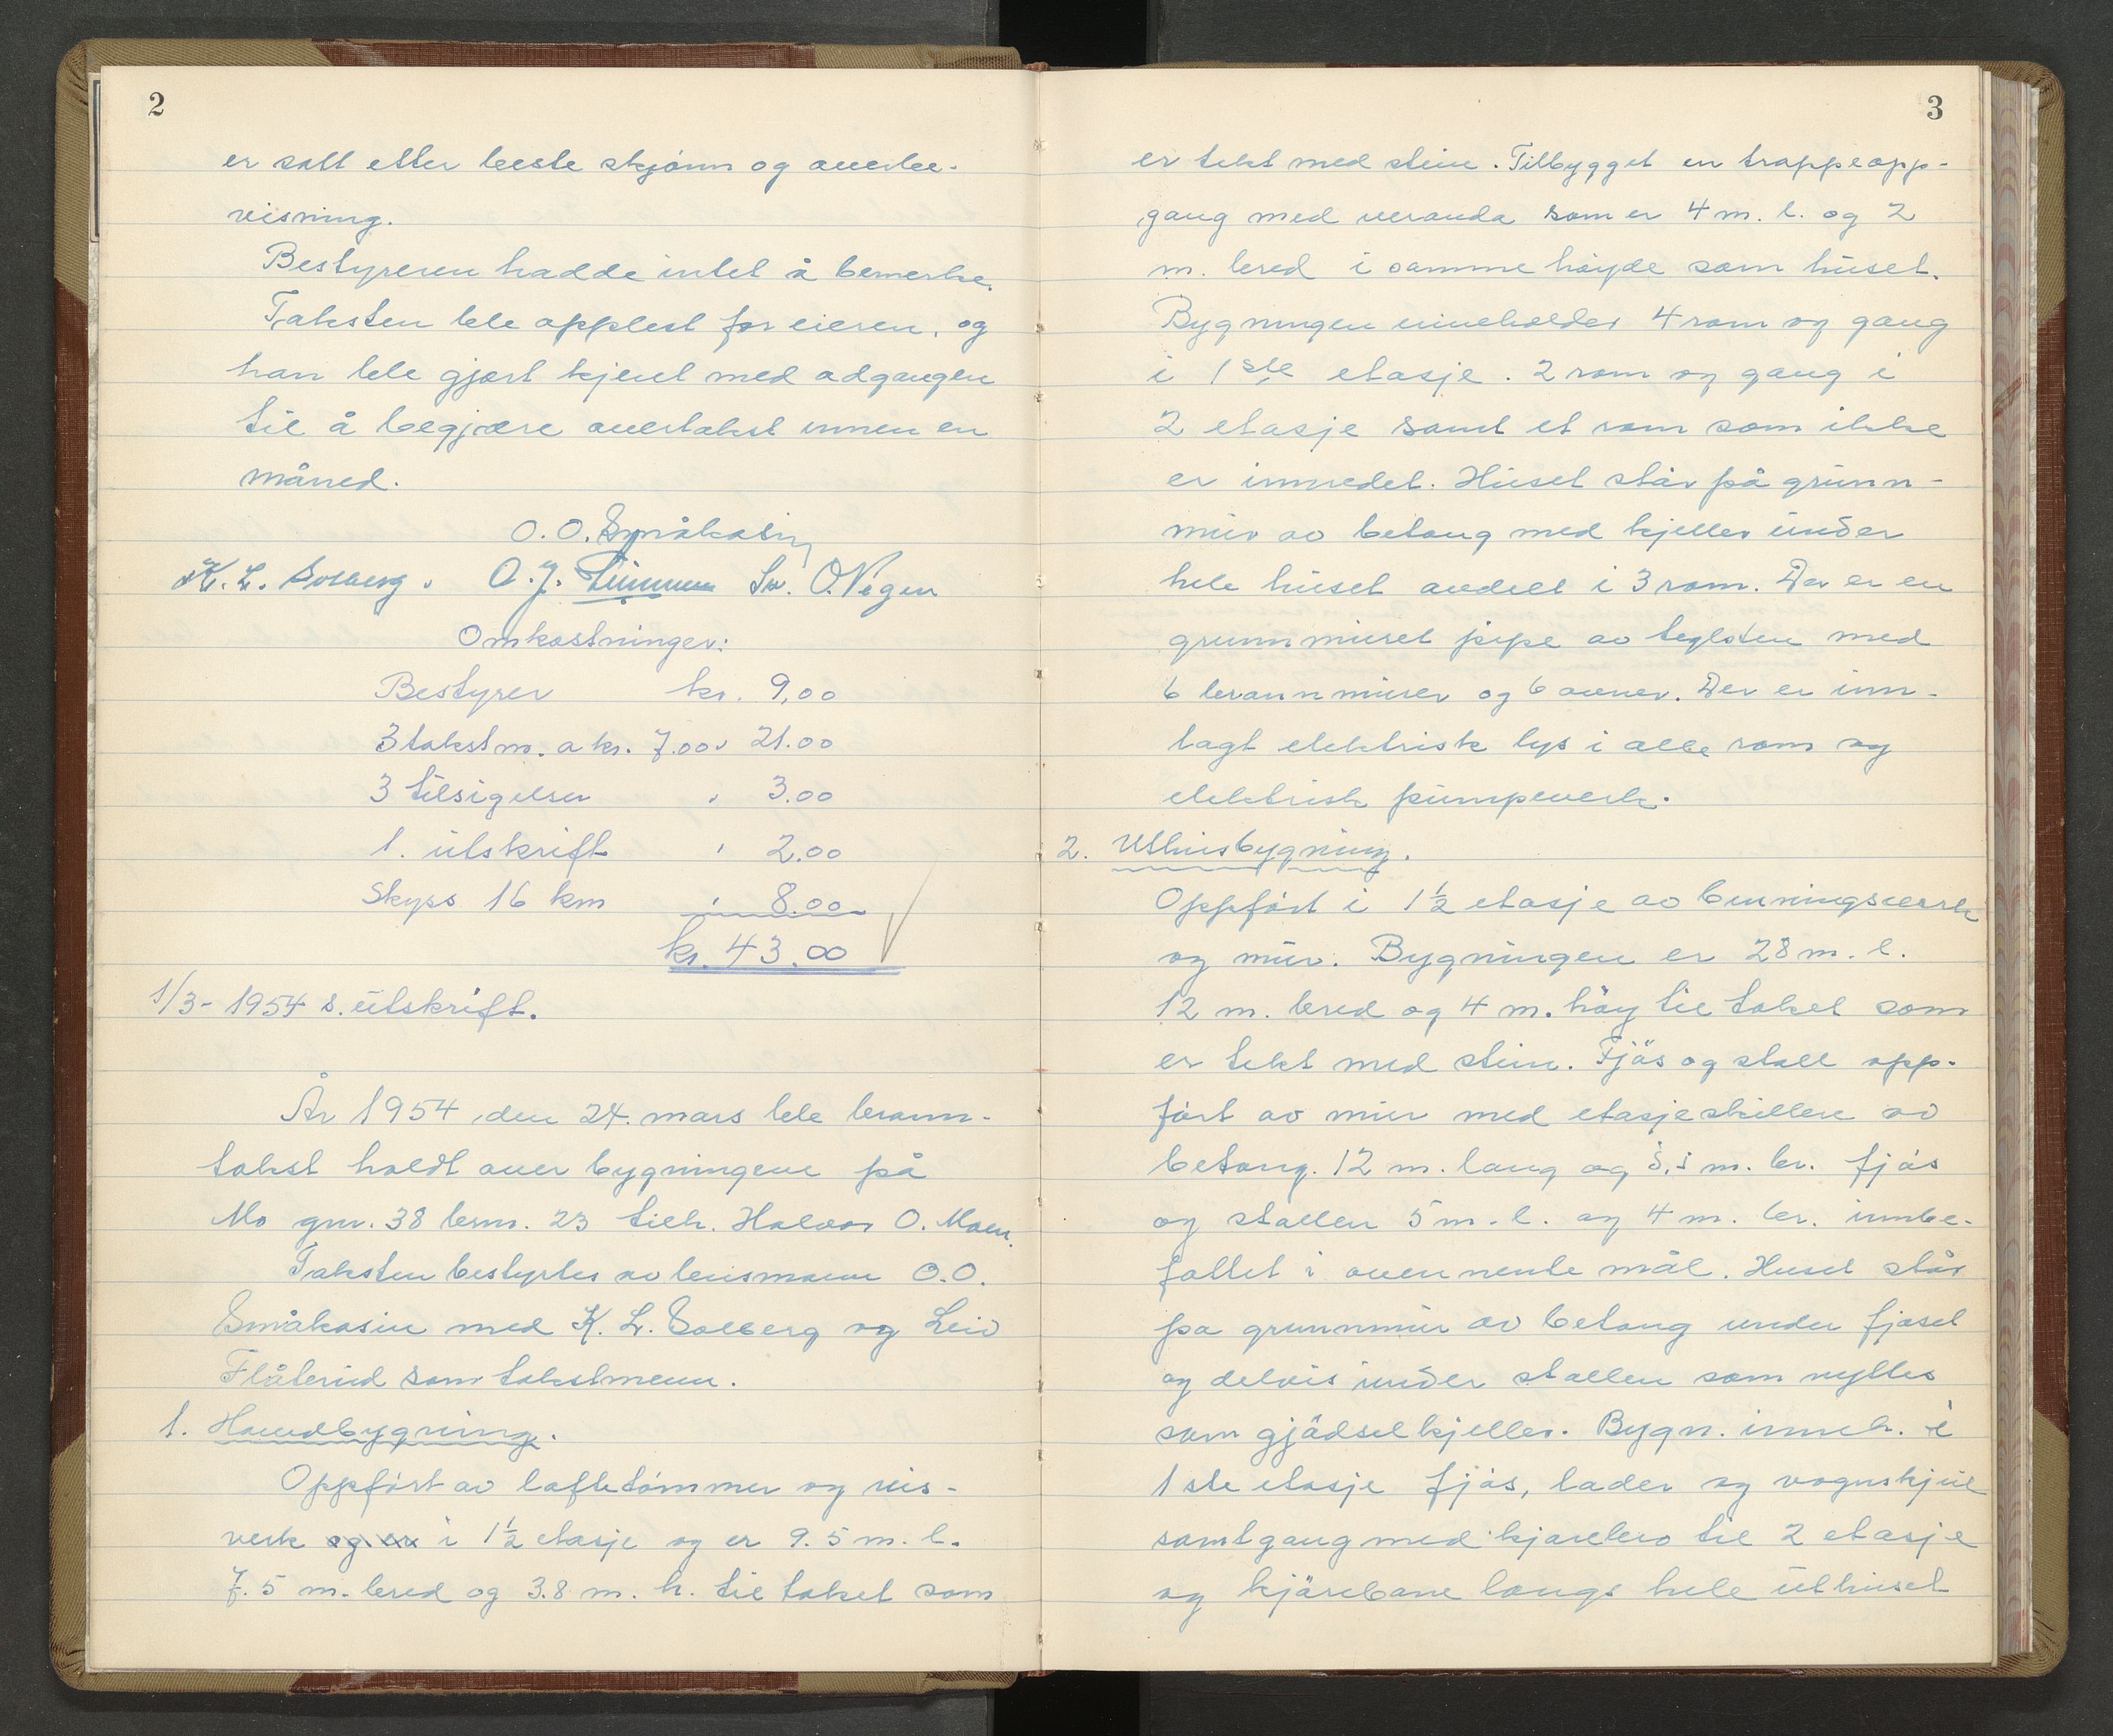 2
er satt etter beste skjønn og overbe-
visning.
Bestyreren hadde intet å bemerke.
Taksten ble opplest for eieren, og
han ble gjort kjent med adgangen
til å begjære overtakst innen en
måned.
O.O. Småkasin
K. L. Solberg. O. J. Sv. O. Vegen
Omkostninger:
Bestyrer kr. 9,00
3 takstm. a kr. 7.00 " 21.00
3 tilsigelser " 3.00
1. utskrift " 2.00
Skyss 16 km " 8.00
kr. 43.00
1/3 - 1954 s. utskrift.
År 1954 den 24. mars ble brann-
takst holdt over bygningene på
Mo gnr. 38 brnr. 23 tilh. Halvor O. Moen.
Taksten bestyrtes av lensmann O.O.
Småkasin med K. L. Solberg og Leiv
Flåterud som takstmenn.
1. Hovedbygning.
Oppført av laftetømmer og reis-
verk og er i 1 1/2 etasje og er 9.5 m. l.
7.5 m. bred og 3.8 m. h. til taket som
3
er tekt med stein. Tilbygget en trappeopp-
gang med veranda som er 4 m. l. og 2
m. bred i samme høyde som huset.
Bygningen inneholder 4 rom og gang
i 1ste etasje. 2 rom og gang i
2 etasje samt et rom som ikke
er innredet. Huset står på grunn-
mur av betong med kjeller under
hele huset avdelt i 3 rom. Der er en
grunnmuret pipe av teglsten med
6 brannmurer og 6 ovner. Der er inn-
lagt elektrisk lys i alle rom og
elektrisk pumpeverk.
2. Uthusbygning.
Oppført i 1 1/2 etasje av binningsverk
og mur. Bygningen er 28 m. l.
12 m. bred og 4 m. høy til taket som
er tekt med stein. Fjøs og stall opp-
ført av mur med etasjeskillere av
betong. 12 m. lang og m. br. fjøs
og stallen 5 m. l. og 4 m. br. innbe-
fattet i ovennevnte mål. Huset står
på grunnmur av betong under fjøset
og delvis under stallen som nyttes
som gjødselkjeller. Bygn. inneh. i
1ste etasje fjøs, lader og vognskjul
samt gang med kjørebro til 2 etasje
og kjørebane langs hele uthuset